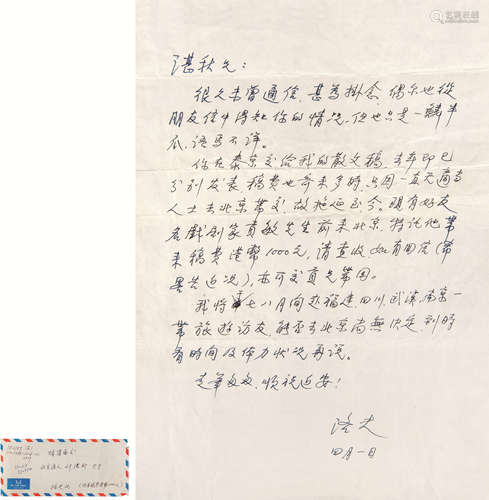 湛秋兄：
很久未曾通信，甚為掛念，偶尔也從
朋友信中得知你的情况，但也只是一鳞半
爪，语焉不详。
你在泰京交给我的散文稿，去年即已
分别发表，稿费也寄来多時，只因一直无適当
人士去北京带交，故拖延至今。現有好友
名戲剧家貢敏先生前来北京，特託他带
来稿费港幣1000元，请查收，如有回信（带
畧告近况），亦可交貢先生带回。
我将於七八月间赴福建、四川、武汉、南京一
带旅遊访友，能否去北京尚無決定，到時
看時间及体力状况再说。
走筆匆匆，顺祝近安！
洛夫
四月一日